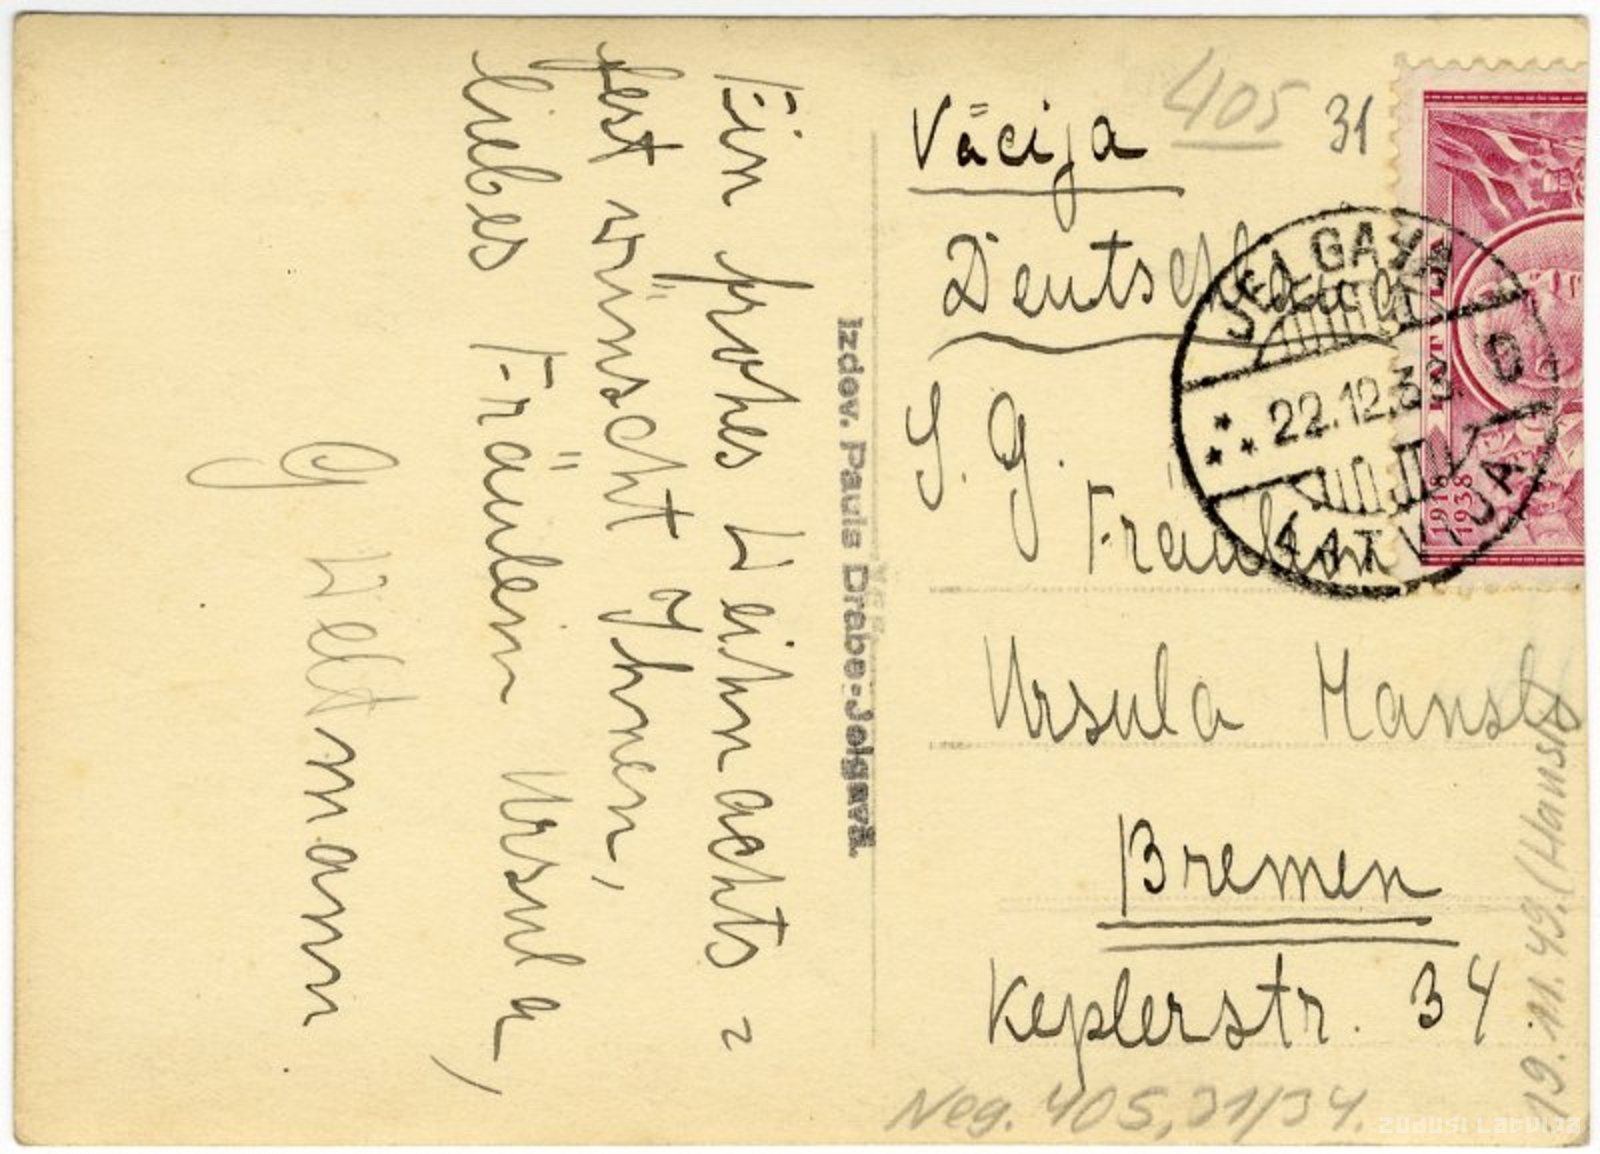 Ein frohes Weihnachts=
fest wünscht Ihnen,
liebes Fräulein Ursula,
G Weltmann
Izdev. Paula Drebe-Jelgavā.
405 31
Vācija
Deutschland
S. G.
Fräulein
Ursula
Bremen
Keplerstr. 34
JELGAVA
22.12.38. G
LATVIJA
LATVIJA
1918
1938
Neg. 405,31/34.
19.11.49. (Hansly
ZUDUSI LATVIJA